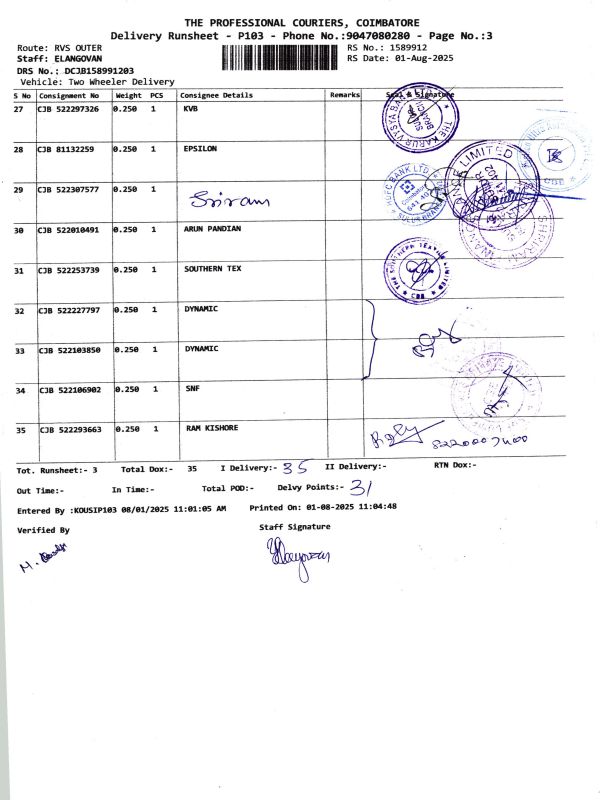 THE PROFESSIONAL COURIERS, COIMBATORE
Delivery Runsheet - P103 - Phone No.:9047080280 - Page No.:3
Route: RVS OUTER RS No.: 1589912
Staff: ELANGOVAN RS Date: 01-Aug-2025
DRS No.: DCJB158991203
Vehicle: Two Wheeler Delivery
S No Consignment No Weight PCS Consignee Details Remarks Seal & Signature
27 CJB 522297326 0.250 1 KVB
THE KARUR VYSYA BANK
SULUR
BRANCH
28 CJB 81132259 0.250 1 EPSILON
CBE
29 CJB 522307577 0.250 1 Sriram
HDFC BANK LTD
Coimbatore
641 402
SULUR BRANCH
LIMITED
30 CJB 522010491 0.250 1 ARUN PANDIAN
SHRIRAM
31 CJB 522253739 0.250 1 SOUTHERN TEX
THE SOUTHERN TEXTILE LIMITED
CBE
32 CJB 522227797 0.250 1 DYNAMIC
33 CJB 522103850 0.250 1 DYNAMIC
34 CJB 522106902 0.250 1 SNF
35 CJB 522293663 0.250 1 RAM KISHORE
8220007400
Tot. Runsheet:- 3 Total Dox:- 35 I Delivery:- 35 II Delivery:- RTN Dox:-
Out Time:- In Time:- Total POD:- Delvy Points:- 31
Entered By :KOUSIP103 08/01/2025 11:01:05 AM Printed On: 01-08-2025 11:04:48
Verified By Staff Signature
Elangovan